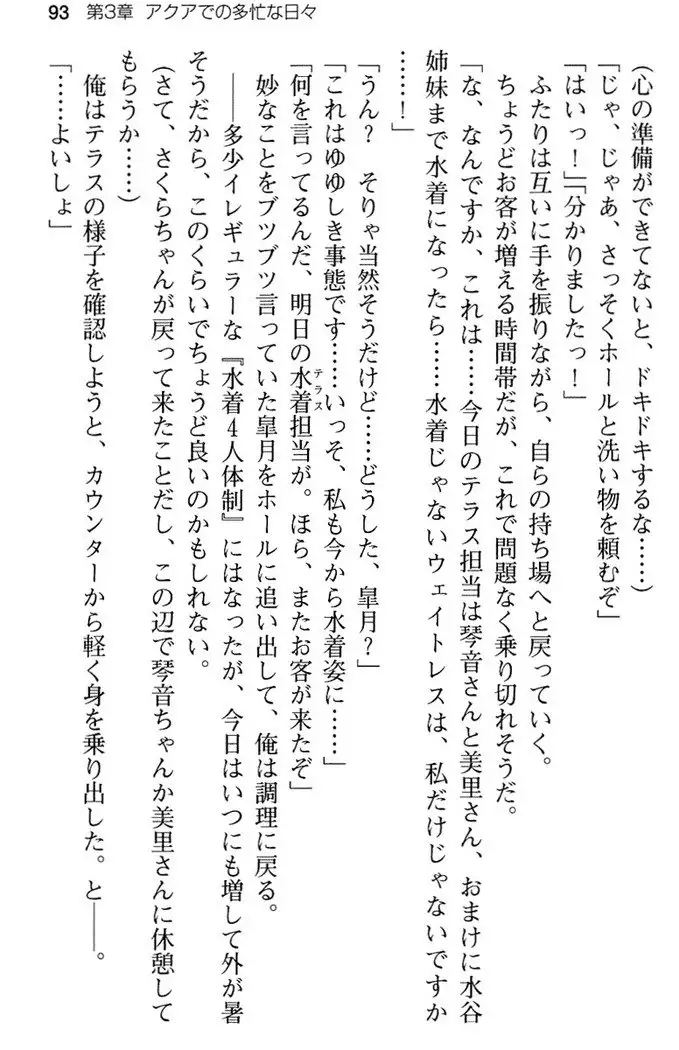 93 第3章 アクアでの多忙な日々
(心の準備ができてないと、ドキドキするな……)
「じゃ、じゃあ、さっそくホールと洗い物を頼むぞ」
「はいっ！」「分かりましたっ！」
ふたりは互いに手を振りながら、自らの持ち場へと戻っていく。
ちょうどお客が増える時間帯だが、これで問題なく乗り切れそうだ。
「な、なんですか、これは……今日のテラス担当は琴音さんと美里さん、おまけに水谷
姉妹まで水着になったら……水着じゃないウェイトレスは、私だけじゃないですか
……！」
「うん？　そりゃ当然そうだけど……どうした、皐月？」
「これはゆゆしき事態です……いっそ、私も今から水着姿に……」
「何を言ってるんだ、明日の水着テラス担当が。ほら、またお客が来たぞ」
妙なことをブツブツ言っていた皐月をホールに追い出して、俺は調理に戻る。
――多少イレギュラーな『水着4人体制』にはなったが、今日はいつにも増して外が暑
そうだから、このくらいでちょうど良いのかもしれない。
(さて、さくらちゃんが戻って来たことだし、この辺で琴音ちゃんか美里さんに休憩して
もらうか……)
俺はテラスの様子を確認しようと、カウンターから軽く身を乗り出した。と――。
「……よいしょ」